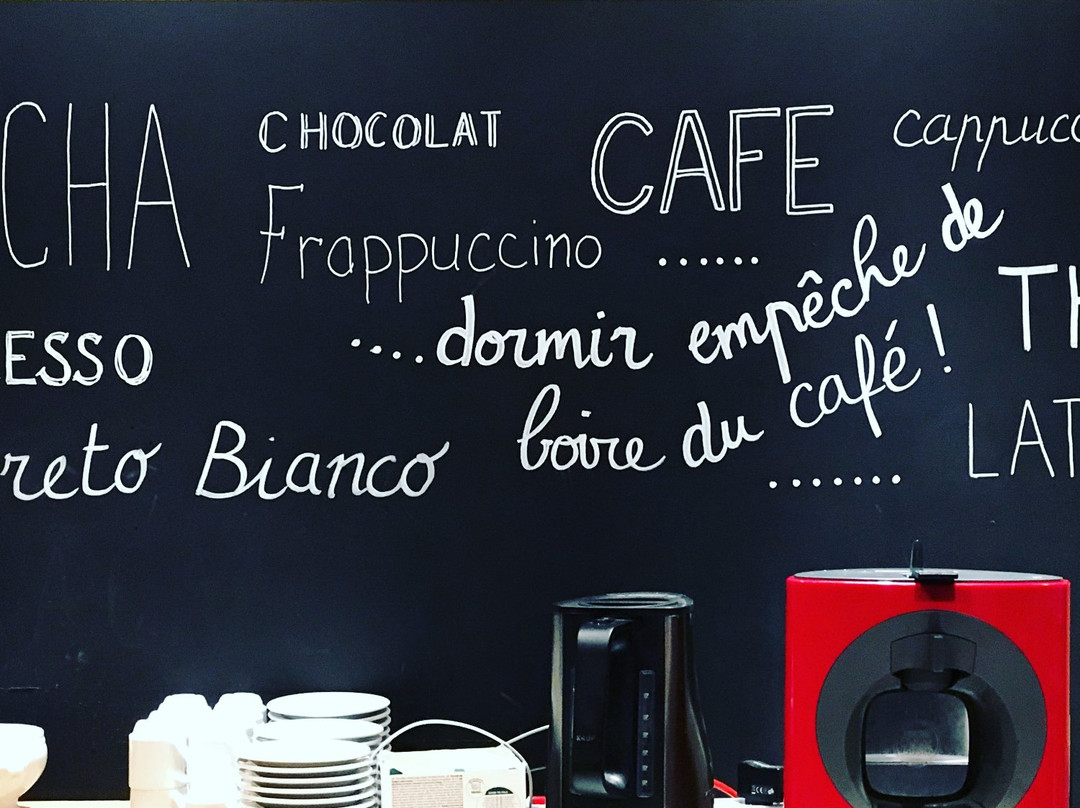 CHA
CHOCOLAT
CAFE
cappucc
Frappuccino ......
....dormir empêche de
boire du café !
.......
TH
ESSO
reto Bianco
LAT
KRUPS